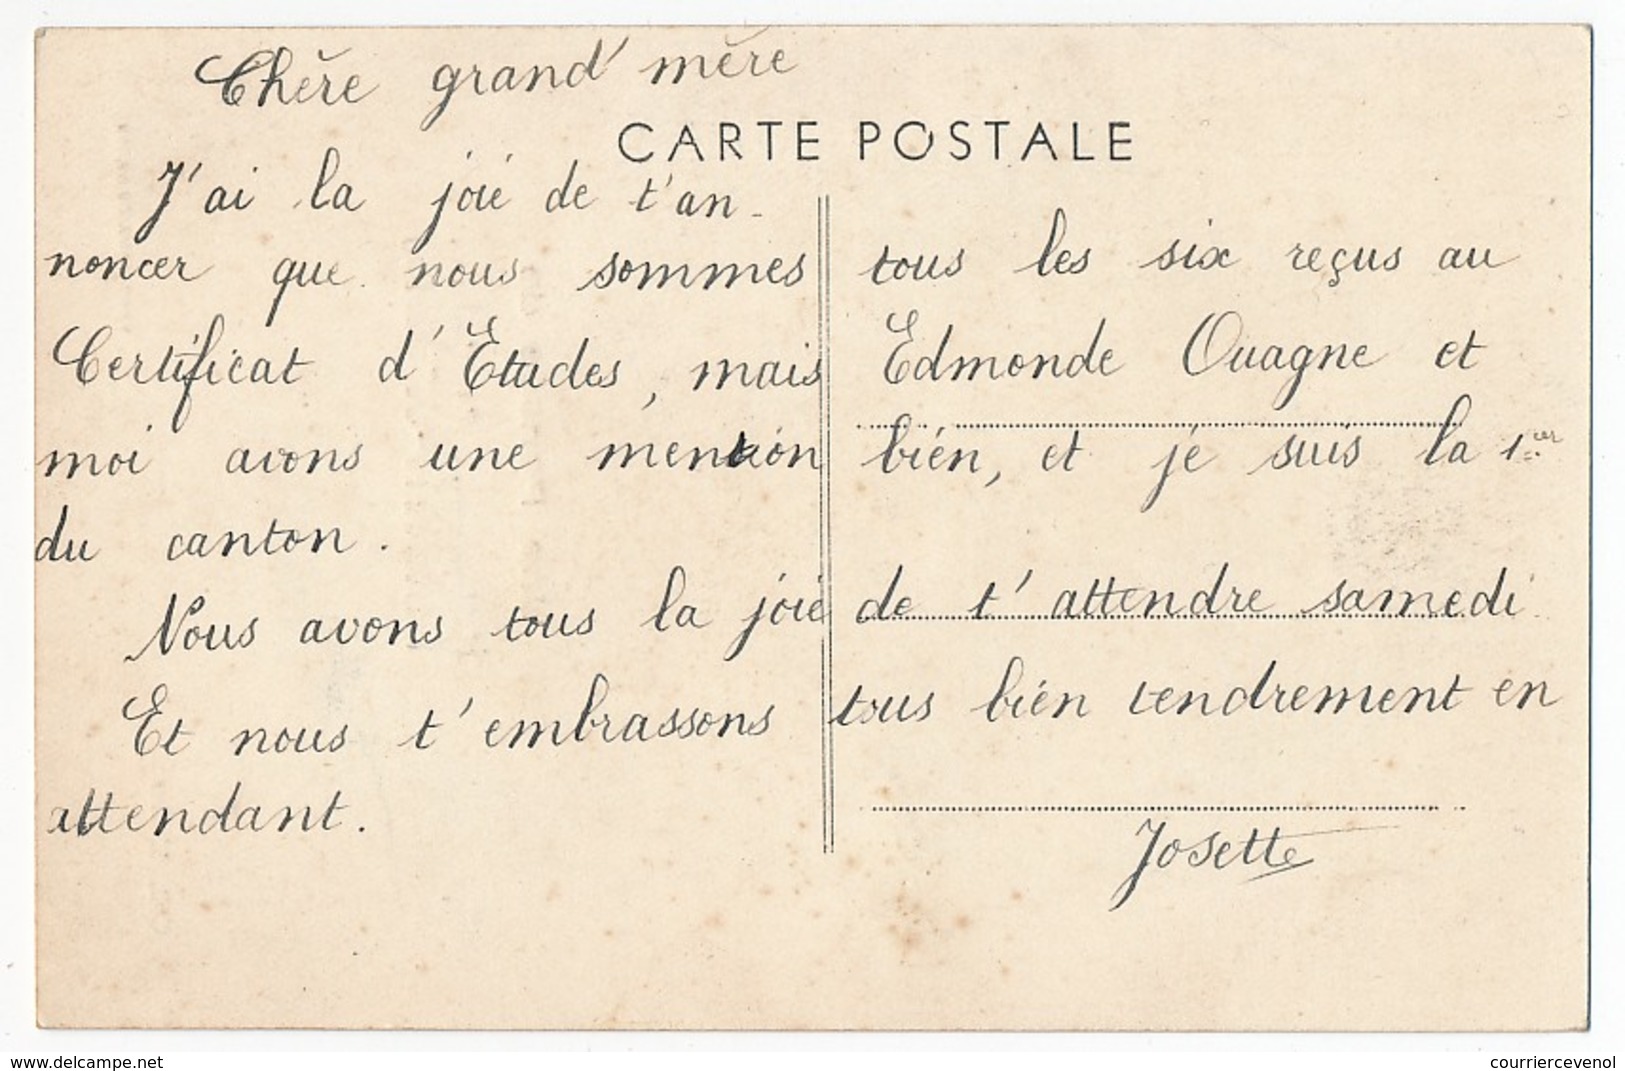 Chère grand'mère
CARTE POSTALE
J'ai la joie de t'an-
noncer que nous sommes tous les six reçus au
Certificat d'Etudes, mais Edmonde Ouagne et
moi avons une mention bien, et je suis la 1er
du canton.
Nous avons tous la joie de t'attendre samedi
Et nous t'embrassons tous bien tendrement en
attendant.
Josette
www.delcampe.net
courriercevenol